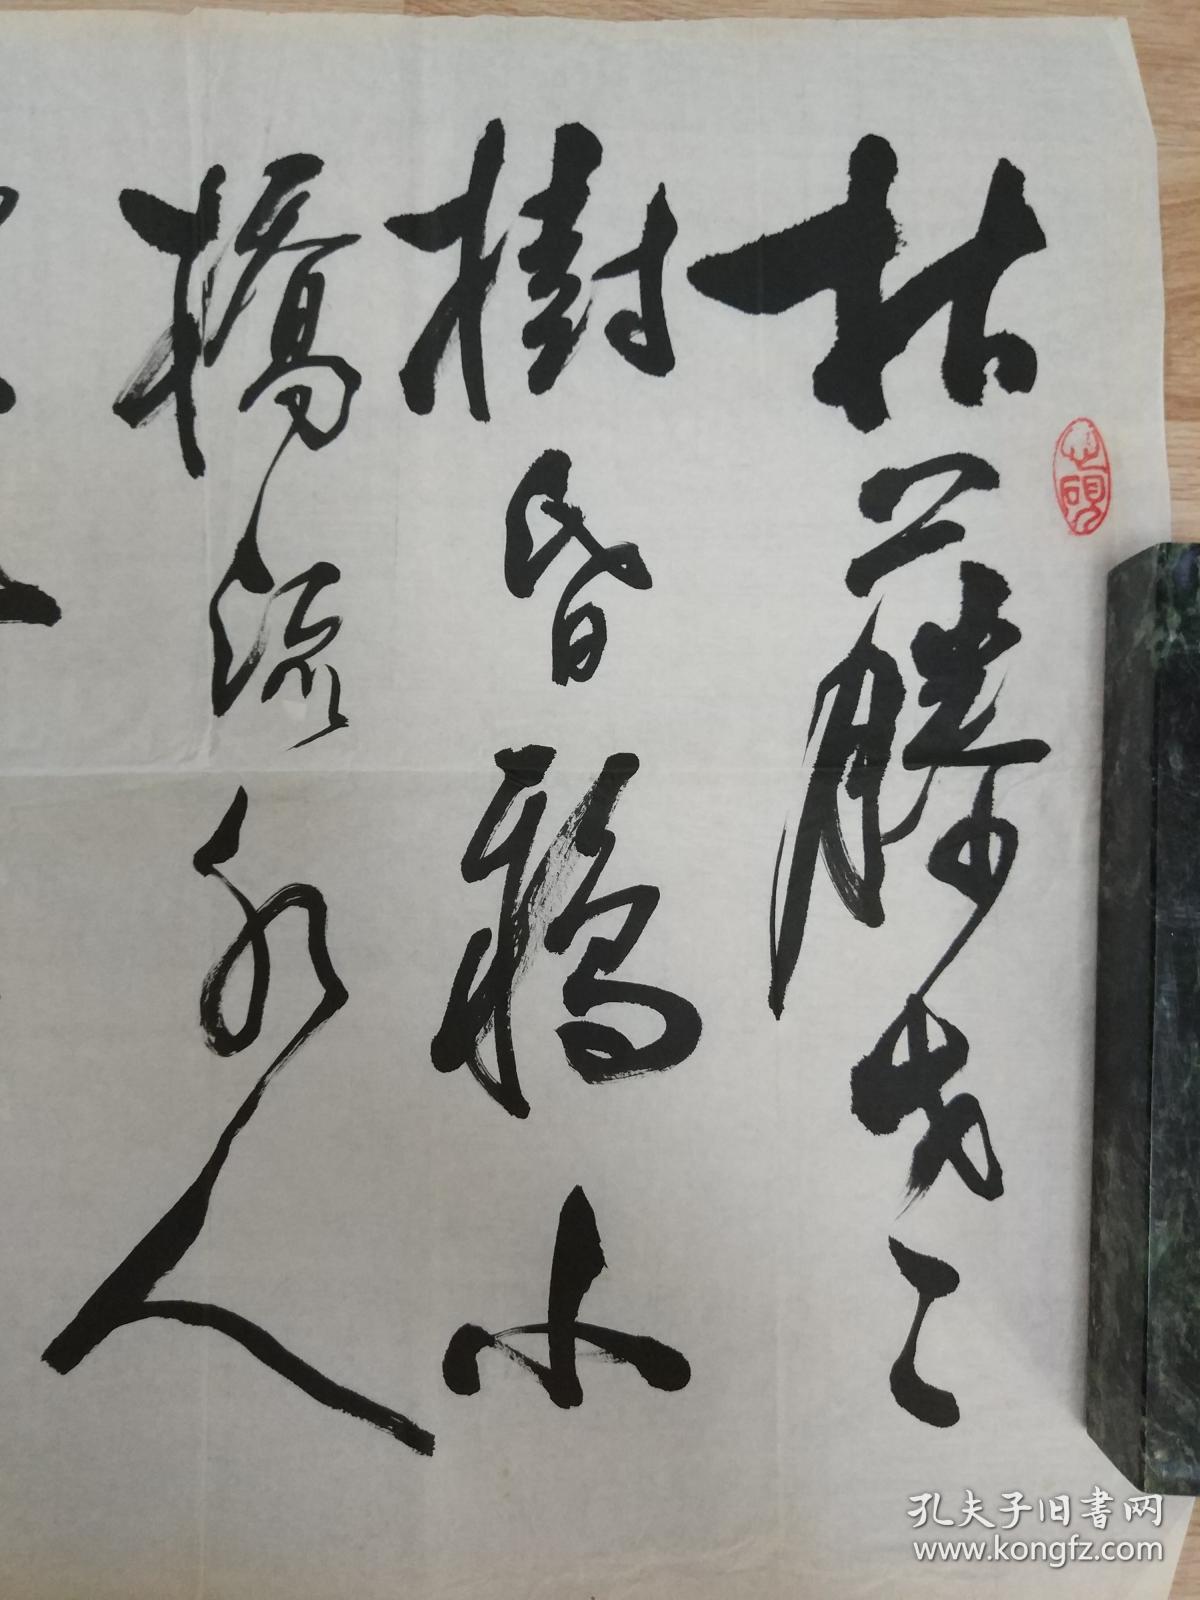 枯藤老〻
樹昏鴉小
橋流水人
孔夫子旧书网
www.kongfz.com